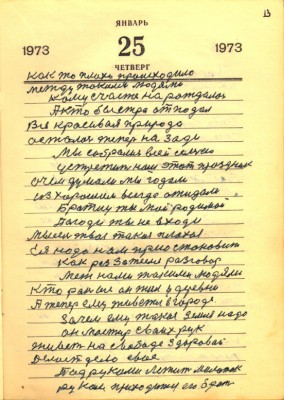 13
ЯНВАРЬ
1973 25 1973
ЧЕТВЕРГ
как то плихи происходило
между такими людями
кому счастя на рождалос
А кто быстро отпадал
Вся красивая природа
осталос тепер на зади
Мы собралис всей семию
устретит наш этот праздник
о чем думали мы годами
из Харашим всегда ожидали
Братку ты мой родимой
Пагоди ты не входи
Мысел твая такая плахая
ся надо нам приостановит
Как раз Зателі разговор
Меж нами такими людями
Кто ранше он жил в деревни
А тепер ему живеты в городе
Зачем ему такая Земля надо
он мастир сваих рук
живет на свабоде здоровай
Делает дело свое
Пад руками лежит малаток
рукам приходити его брат